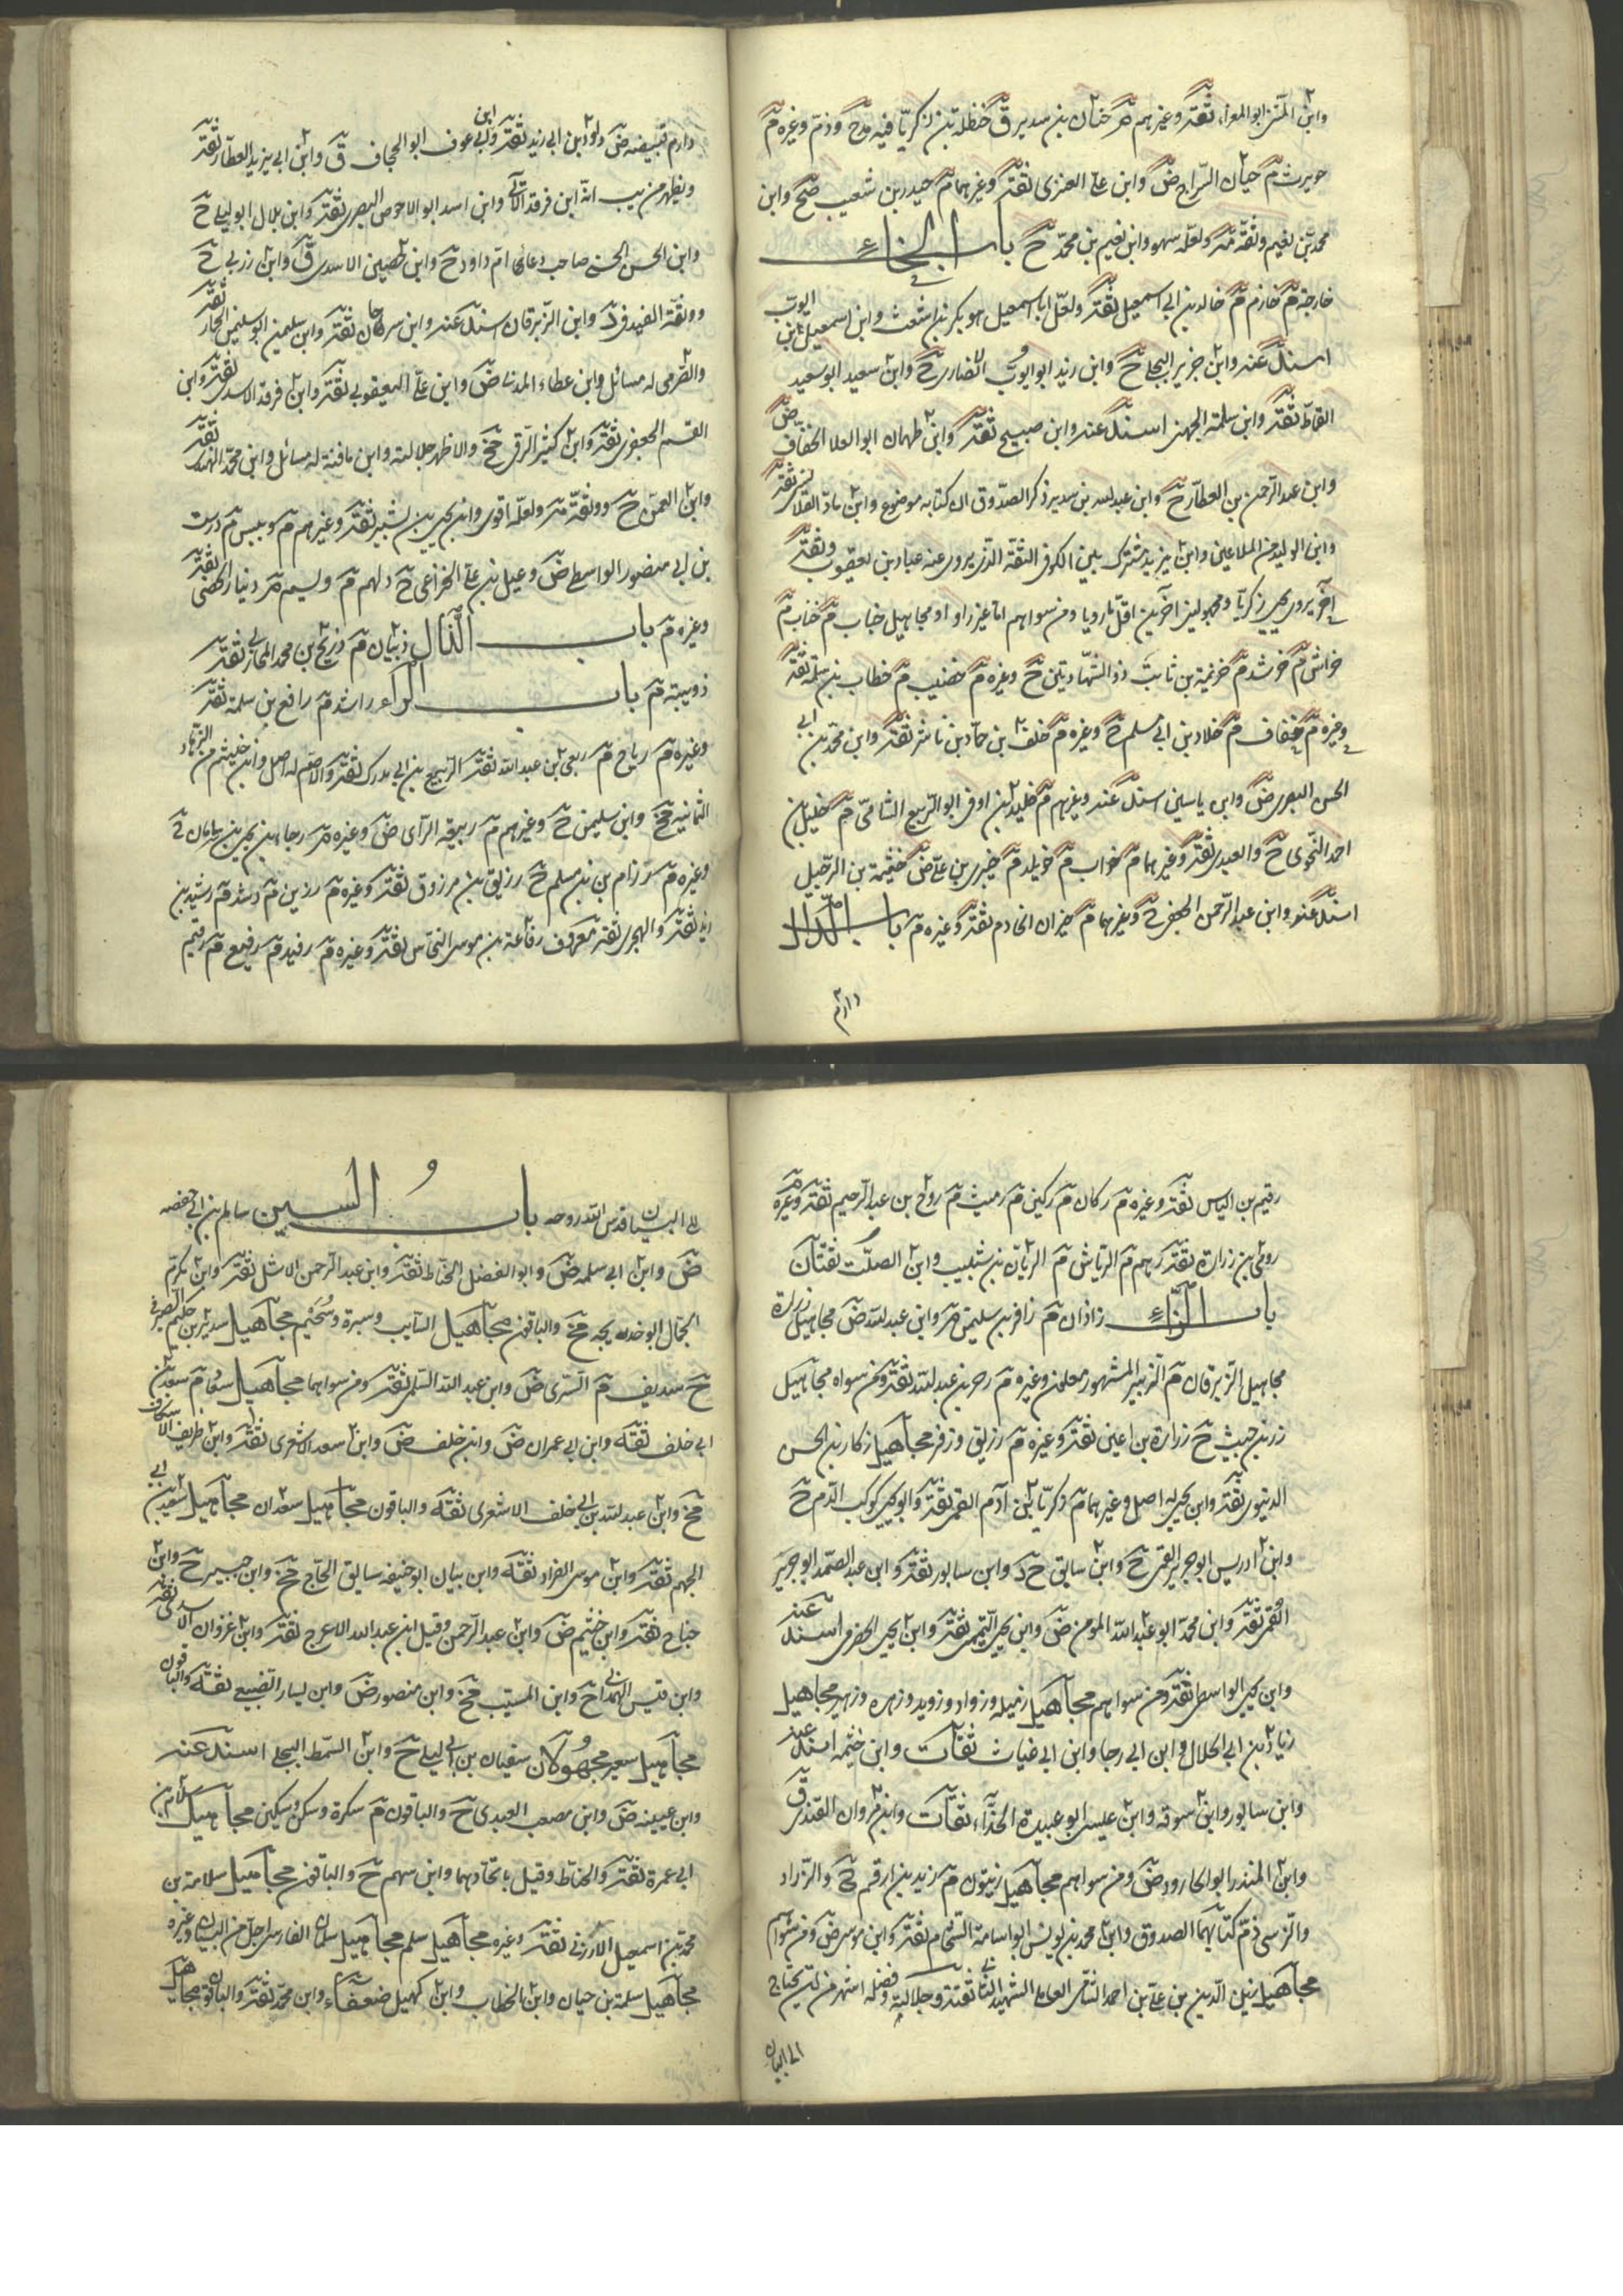 وابن المثنى ابو المعزا ثقة وغيرهم م حنان بن سدير ق حنظلة بن زكريا فيه مدح وذم وغيره م
حويرث م حيان السراج ض وابن علي العنزي ثقة وغيرهما م حيدر بن شعيب صح وابن
محمد بن نعيم وثقه مه ولعله سهو وابن نعيم بن محمد ح باب الخاء
خارجة م خازم م خالد بن ابي اسمعيل ثقة ولعل ابا اسمعيل هو بكر بن اشعث وابن اسمعيل بن ايوب
اسند عنه وابن جرير البجلي ح وابن زيد ابو ايوب الانصاري ح وابن سعيد ابو سعيد
القماط ثقة وابن سلمة الجهني اسند عنه وابن صبيح ثقة وابن طهمان ابو العلا الخفاف ض
وابن عبد الرحمن بن العطار ح وابن عبد الله بن سدير ذكر الصدوق ان كتابه موضوع وابن ماد القلانسي ثقة
وابن الوليد من الملاعين وابن يزيد مشترك بين الكوفي الثقة الذي يروى عنه عباد بن يعقوب وثقة
اخر يروى يحيى زكريا ومجهولين اخرين اقل رويا ومن سواهم اما غير راو او مجاهيل خباب م خناب م
خراش م خرشد م خزيمة بن ثابت ذو الشهادتين ح وغيره م خضيب م خطاب بن سلمة ثقة
وغيره م خفاف م خلاد بن ابي مسلم ح وغيره م خلف بن حماد بن ناشر ثقة وابن محمد بن ابي
الحسن البصري ض وابن ياسين اسند عنه وغيرهم م خليد بن اوفى ابو الربيع الشامي م خليل بن
احمد النحوي ح والعبدي ثقة وغيرهما م خواب م خويلد م خيبري بن علي ض خيثمة بن الرحيل
اسند عنه وابن عبد الرحمن الجعفي ح وغيرهما م خيران الخادم ثقة وغيره م باب الدال
دارم
دارم قبيصه ض داود بن ابي زيد ثقة وابن ابي عوف ابو الجحاف ق وابن ابي يزيد العطار ثقة
ويظهر من يب انه ابن فرقد الآتي وابن اسد ابو الاحوص البصري ثقة وابن بلال ابو ليلى ح
وابن الحسن الحسني صاحب دعاء ام داود ح وابن الحصين الاسدي ق وابن زربي ح
ووثقه المفيد في د وابن الزبرقان اسند عنه وابن سرحان ثقة وابن سليمن ابو سليمن الحمار ثقة
والصرمي له مسائل وابن عطاء المدني ض وابن علي اليعقوبي ثقة وابن فرقد الاسدي ثقة وابن
القسم الجعفري ثقة وابن كثير الرقي مخ والاظهر جلالته وابن مافنة له مسائل وابن محمد النهدي ثقة
وابن النعمن ح ووثقه مه ولعله اقوى وابن يحيى بن بشير ثقة وغيرهم م دبيس م درست
بن ابي منصور الواسطي ض دعبل بن علي الخزاعي ح دلهم م دليم م دينار الخصي ثقة
وغيره م باب الذال ذبيان م ذريح بن محمد المحاربي ثقة
ذويبة م باب الراء راشد م رافع بن سلمة ثقة
وغيره م رباح م ربعي بن عبد الله ثقة الربيع بن ابي مدرك ثقة والاصم له اصل وابن خثيم من الزهاد
الثمانية مخ وابن سليمن ح وغيرهم م ربيعة الراي ض وغيره م رجا بن يحيى بن سامان ح
وغيره م رزام بن مسلم ح رزيق بن مرزوق ثقة وغيره م رزين م رشد م رشيد بن
زيد ثقة والهجري ثقة معروف رفاعة بن موسى النخاس ثقة وغيره م رفيد م رفيع م رقيم
رقيم بن الياس ثقة وغيره م ركان م ركين م رميث م روح بن عبد الرحيم ثقة وغيره م
رومي بن زرارة ثقة رهم م الرياشي م الريان بن شبيب وابن الصلت ثقتان
باب الزاء زاذان م زافر بن سليمن م وابن عبد الله ض مجاهيل زرارة
مجاهيل الزبرقان م الزبير المشهور معلون وغيره م زحر بن عبد الله ثقة ومن سواه مجاهيل
زر بن حبيش ح زرارة بن اعين ثقة وغيره م زريق وزفر مجاهيل زكار بن الحسن
الدينوري ثقة وابن يحيى له اصل وغيرهما م زكريا بن آدم القمي ثقة وابو يحيى كوكب الدم ح
وابن ادريس ابو جرير القمي ح وابن سابق ح د وابن سابور ثقة وابن عبد الصمد ابو جرير
القمي ثقة وابن محمد ابو عبد الله المومن ض وابن يحيى التميمي ثقة وابن يحيى الحضرمي اسند عنه
وابن يحيى الواسطي ثقة ومن سواهم مجاهيل زميله وزواد وزويد وزهره وزهير مجاهيل
زياد بن ابي الحلال وابن ابي رجا وابن ابي غياث ثقات وابن خثيمه اسند عنه
وابن سابور وابن سوقه وابن عيسى ابو عبيدة الحذاء ثقات وابن مروان القندي ق
وابن المنذر ابو الجارود ض ومن سواهم مجاهيل زيتون م زيد بن ارقم ح والزراد
والنرسي ذم كتابهما الصدوق وابن محمد بن يونس ابو اسامة الشحام ثقة وابن موسى ض ومن سواهم
مجاهيل زين الدين بن علي بن احمد الشامي العاملي الشهيد الثاني ثقته وجلالته وفضله اشهر من ان يحتاج
الى البيان
الى البيان قدس الله روحه باب السين سالم بن ابي حفصه
ض وابن ابي سلمه ض وابو الفضل الحناط ثقة وابن عبد الرحمن الاشل ثقة وابن مكرم
الجمال ابو خديجه مخ والباقون مجاهيل السايب وسبرة وسحيم مجاهيل سدير بن حكيم الصيرفي
ح سديف م السري ض وابن عبد الله السلمي ثقة ومن سواهما مجاهيل سعاد م سعد بن
ابي خلف ثقه وابن ابي عمران ض وابن خلف ض وابن سعد الاشعري ثقة وابن طريف الاسكاف
مخ وابن عبد الله بن ابي خلف الاشعري ثقة والباقون مجاهيل سعدان مجاهيل سعيد بن ابي
الجهم ثقة وابن موسى الفراد ثقة وابن بيان ابو حنيفه سابق الحاج مخ وابن جبير ح وابن
جناح ثقة وابن خثيم ض وابن عبد الرحمن وقيل ابن عبد الله الاعرج ثقة وابن غزوان الاسدي ثقة
وابن قيس الهمداني ح وابن المسيب مخ وابن منصور ض وابن يسار الضبيعي ثقة والباقون
مجاهيل سعير مجهولان سفيان بن ابي ليلى ح وابن السمط البجلي اسند عنه
وابن عيينه ض وابن مصعب العبدي ح والباقون م سكرة وسكن وسكين مجاهيل سلام بن
ابي عمرة ثقة والحناط وقيل باتحادهما وابن سهم ح والباقون مجاهيل سلامة بن
محمد بن اسمعيل الارزني ثقة وغيره مجاهيل سلم مجاهيل سلمان الفارسي اجل من البيان وغيره
مجاهيل سلمة بن حيان وابن الخطاب وابن كهيل ضعفاء وابن محمد ثقة والباقون مجاهيل